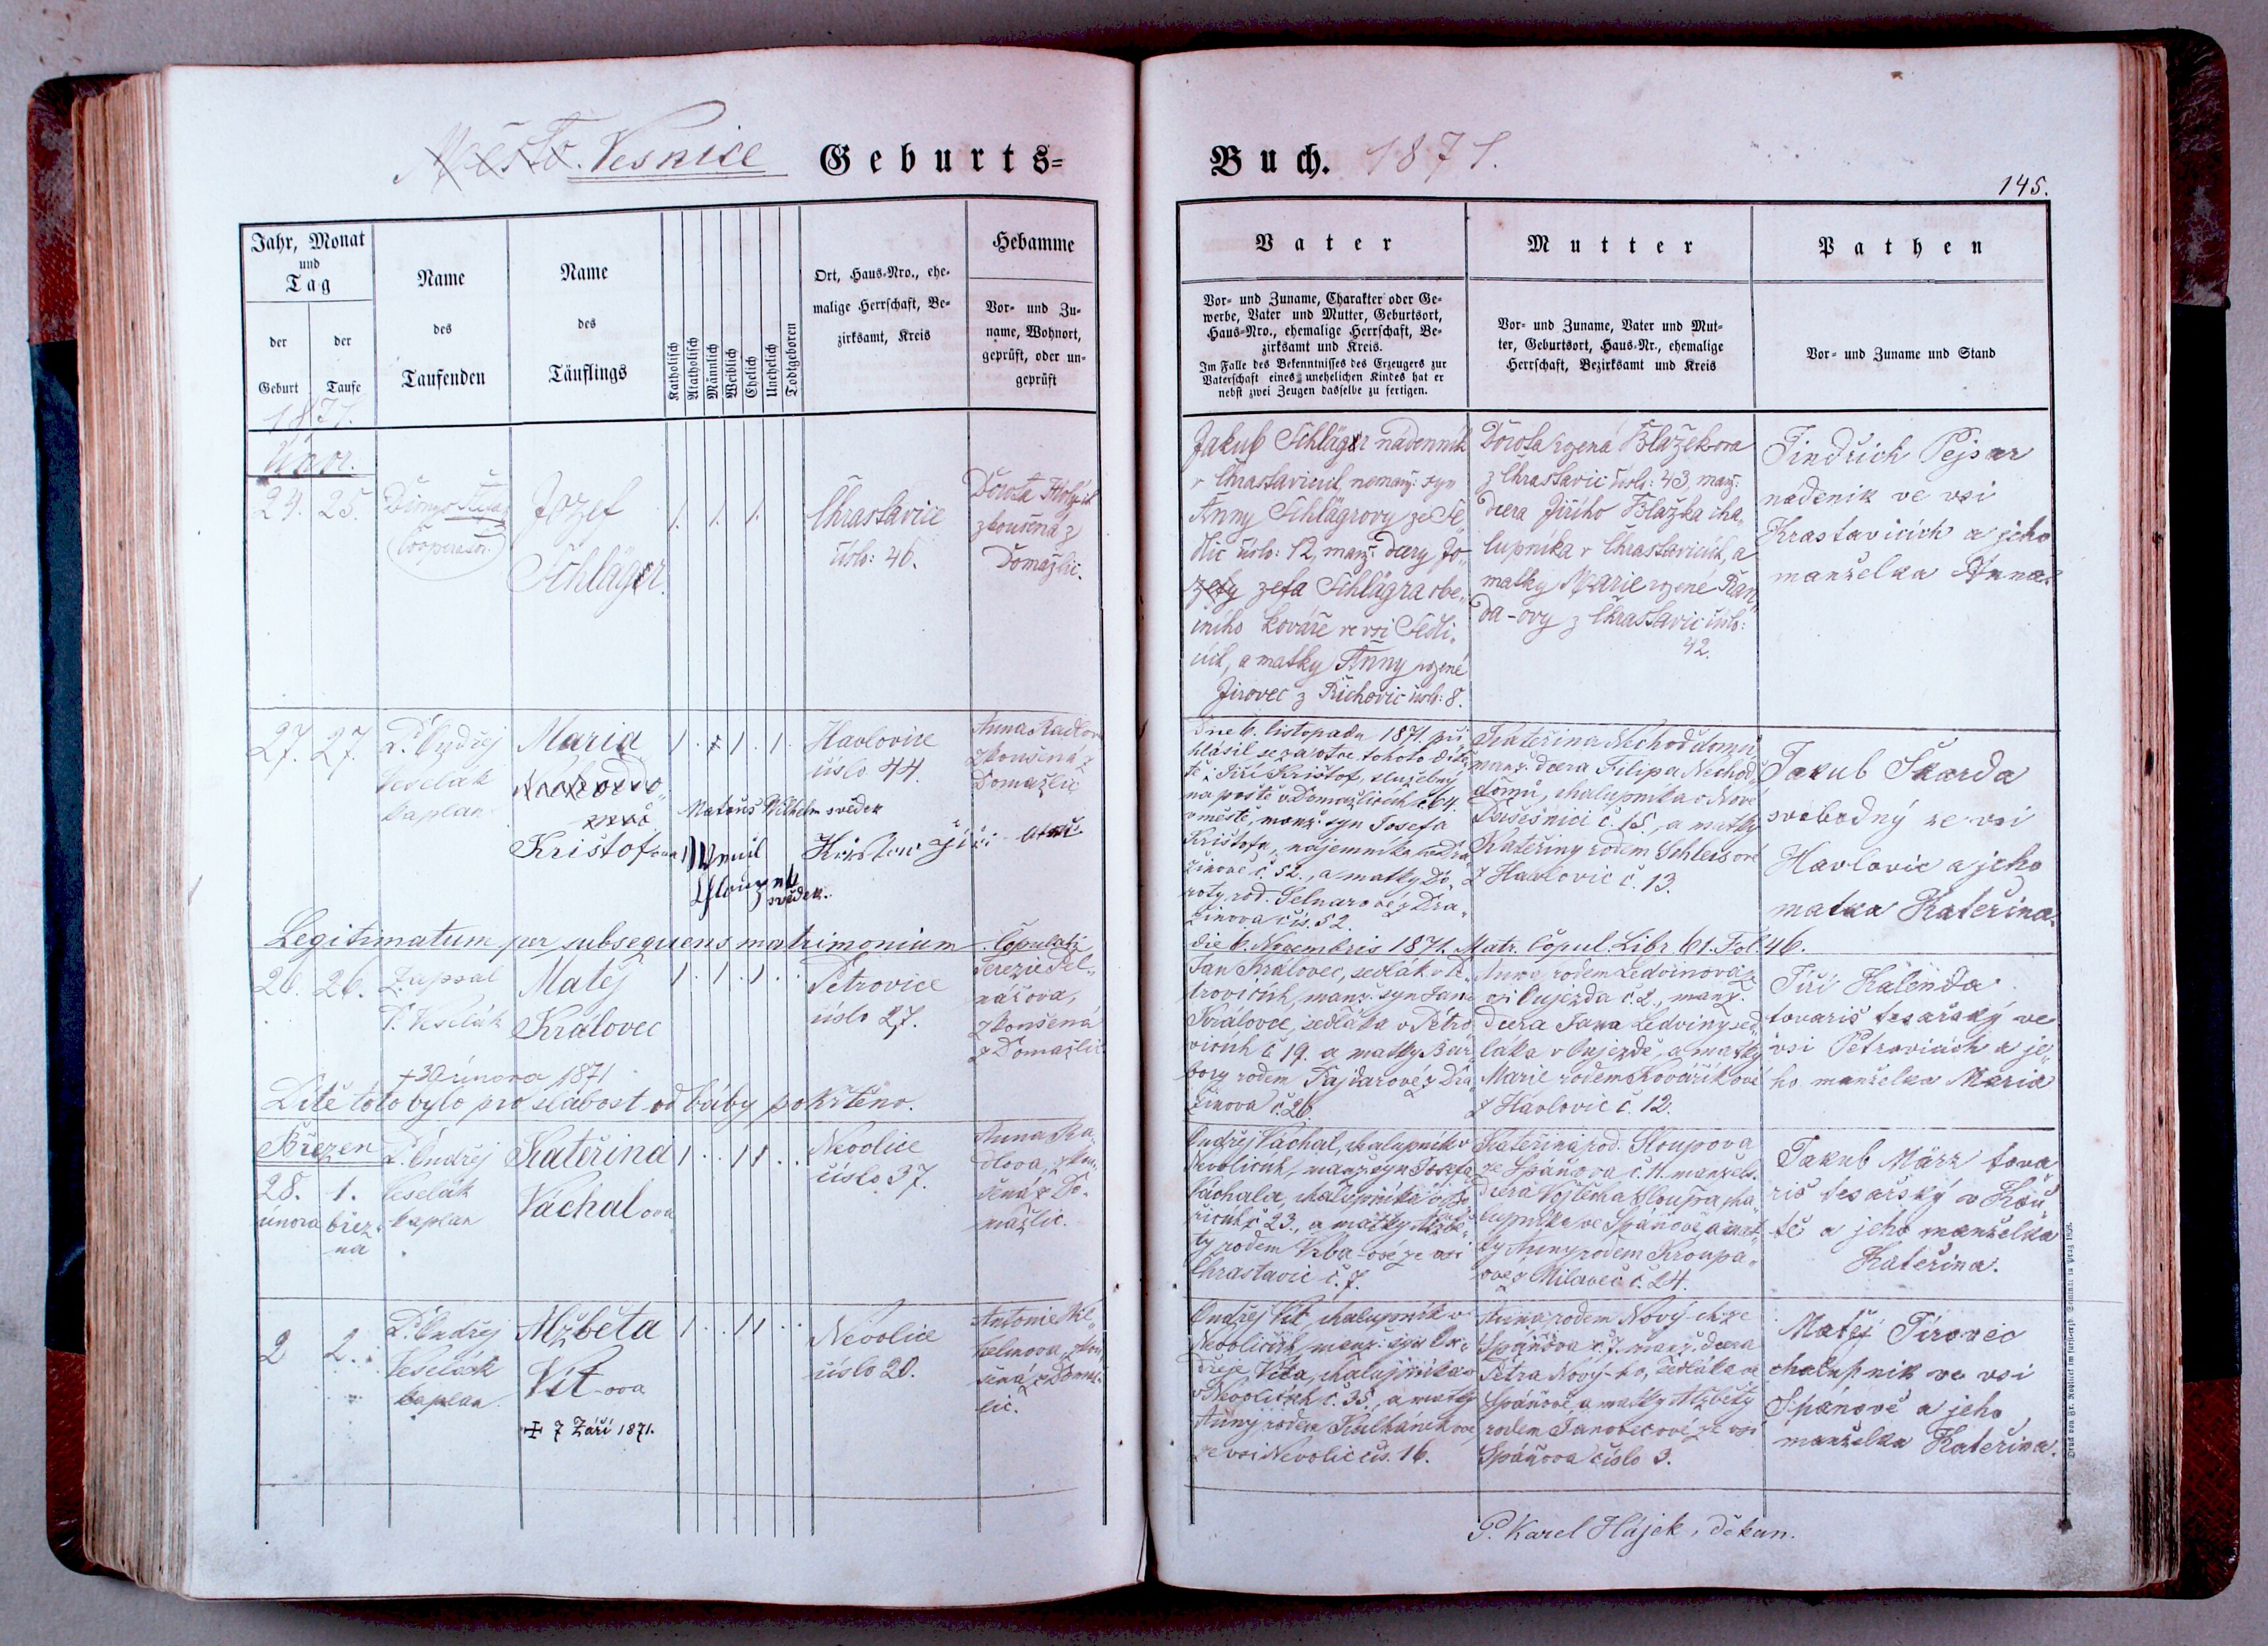 Město. Vesnice Geburts=
Buch. 1871.
145.
Jahr, Monat
und
Tag
der
Geburt
der
Taufe
Name
des
Taufenden
Name
des
Täuflings
Katholisch
Akatholisch
Männlich
Weiblich
Ehelich
Unehelich
Todtgeboren
Ort, Haus-Nro., ehe-
malige Herrschaft, Be-
zirksamt, Kreis
Hebamme
Vor- und Zu-
name, Wohnort,
geprüft, oder un-
geprüft
Vater
Vor- und Zuname, Charakter oder Ge-
werbe, Vater und Mutter, Geburtsort,
Haus-Nro., ehemalige Herrschaft, Be-
zirksamt und Kreis.
Im Falle des Bekenntnisses des Erzeugers zur
Vaterschaft eines unehelichen Kindes hat er
nebst zwei Zeugen dasselbe zu fertigen.
Mutter
Vor- und Zuname, Vater und Mut-
ter, Geburtsort, Haus-Nr., ehemalige
Herrschaft, Bezirksamt und Kreis
Pathen
Vor- und Zuname und Stand
1871.
Únor.
24. 25.
Cooperator.
Jozef
Schlägr.
1. 1. 1.
Chrastavice
číslo: 46.
Dorota
zkoušená z
Domažlic.
Jakub Schlägr nádenník
v Chrastavicích, nemanž: syn
Anny Schlägrovy ze Se-
dlic číslo: 12, manž: dcery Jo-
zefy zefa Schlägra obe-
cního kováře ve vsi Sedli-
cích, a matky Anny rozené
Jirovec z Řichovic číslo: 8.
Dorota rozená Blažkova
z Chrastavic číslo: 43, manž:
dcera Jiřího Blažka cha-
lupníka v Chrastavicích, a
matky Marie rozené Ran-
da-ovy z Chrastavic číslo:
42.
Jindřich Pejsar
nádeník ve vsi
Krastavicích a jeho
manželka Anna.
27. 27.
P. Ondřej
Veselák
kaplan
Maria
Kristofova
1 . 1 . 1.
Havlovice
číslo 44.
Anna Radlova
zkoušená z
Domažlic
Matouš Vilhelm svědek
svědek.
Dne 6. listopadu 1871 při-
hlásil se za otce tohoto dítě-
te: Jiří Krištof, služebný
na poště v Domažlicích č. 64.
v městě, manž. syn Josefa
Krištofa, nájemníka v Dra-
žinově č. 52., a matky Do-
roty rod. Selnarové z Dra-
žinova čís. 52.
Kateřina Nechoďdomů,
manž. dcera Filipa Nechoď-
domů, chalupníka v Nové
Pasečnici č. 15., a matky
Kateřiny rodem Schleisové
z Havlovic č. 13.
Jakub Škarda
svobodný ze vsi
Havlovic a jeho
matka Kateřina.
Legitimatum per subsequens matrimonium. Copulati
die 6. Novembris 1871. Matr. Copul. Libr 61. Fol. 46.
26. 26.
Zapsal
P. Veselák
Matěj
Královec
1 . 1 . 1 . .
Petrovice
číslo 27.
Terezie Pel-
nářova,
zkoušená
z Domažlic
+30 února 1871
Dítě toto bylo pro slabost od báby pokřtěno.
Jan Královec, sedlák v Pe-
trovicích, manž. syn Jana
Královce, sedláka v Petro-
vicích č. 19. a matky Bar-
bory rodem Pajdarové z Dra-
žinova č. 26.
Anna, rodem Ledvinova z
vsi Oujezda č. 2., manž.
dcera Jana Ledviny, sed-
láka v Oujezdě, a matky
Marie rodem Kovaříkové
z Havlovic č. 12.
Jiří Kalenda
tovariš tesařský ve
vsi Petrovicích a je-
ho manželka Maria
Březen
28. 1.
února břez-
na
P. Ondřej
Veselák
kaplan
Kateřina
Váchalova
1 . . 1 1 . .
Nevolice
číslo 37.
Anna Ra-
dlova, zkou-
šená z Do-
mažlic.
Ondřej Váchal, chalupník v
Nevolicích, manž. syn Josefa
Váchala, chalupníka v
č. 23., a matky Alžbě-
ty rodem Vrba-ové ze vsi
Chrastavic č. 7.
Kateřina, rod. Sloupova
ze Spáňova č. 11. manžels.
dcera Vojtěcha Sloupa cha-
lupníka ve Spáňově a mat-
ky Anny rodem Kroupa-
ové z Milaveč č. 24.
Jakub März tova-
riš tesařský v Kou-
tě a jeho manželka
Kateřina.
2 2.
P. Ondřej
Veselák
kaplan
Alžběta
Vít-ova
+ 7 Září 1871.
1 . . 1 1 . .
Nevolice
číslo 20.
Antonie Vil-
helmova, zkou-
šená z Domaž-
lic.
Ondřej Vít, chalupník v
Nevolicích, manž: syn On-
dřeje Víta, chalupníka
v Nevolicích č. 35., a matky
Anny, rodem Kulhánkové
ze vsi Nevolic čís. 16.
Anna rodem Nový-ch ze
Spáňova č. 7. manž. dcera
Petra Nový-ho, sedláka ve
Spáňově, a matky Alžběty
rodem Janovecové ze vsi
Spáňova číslo 3.
Matěj Jirovec
chalupník ve vsi
Spánově a jeho
manželka Kateřina.
P. Karel Hájek, děkan.